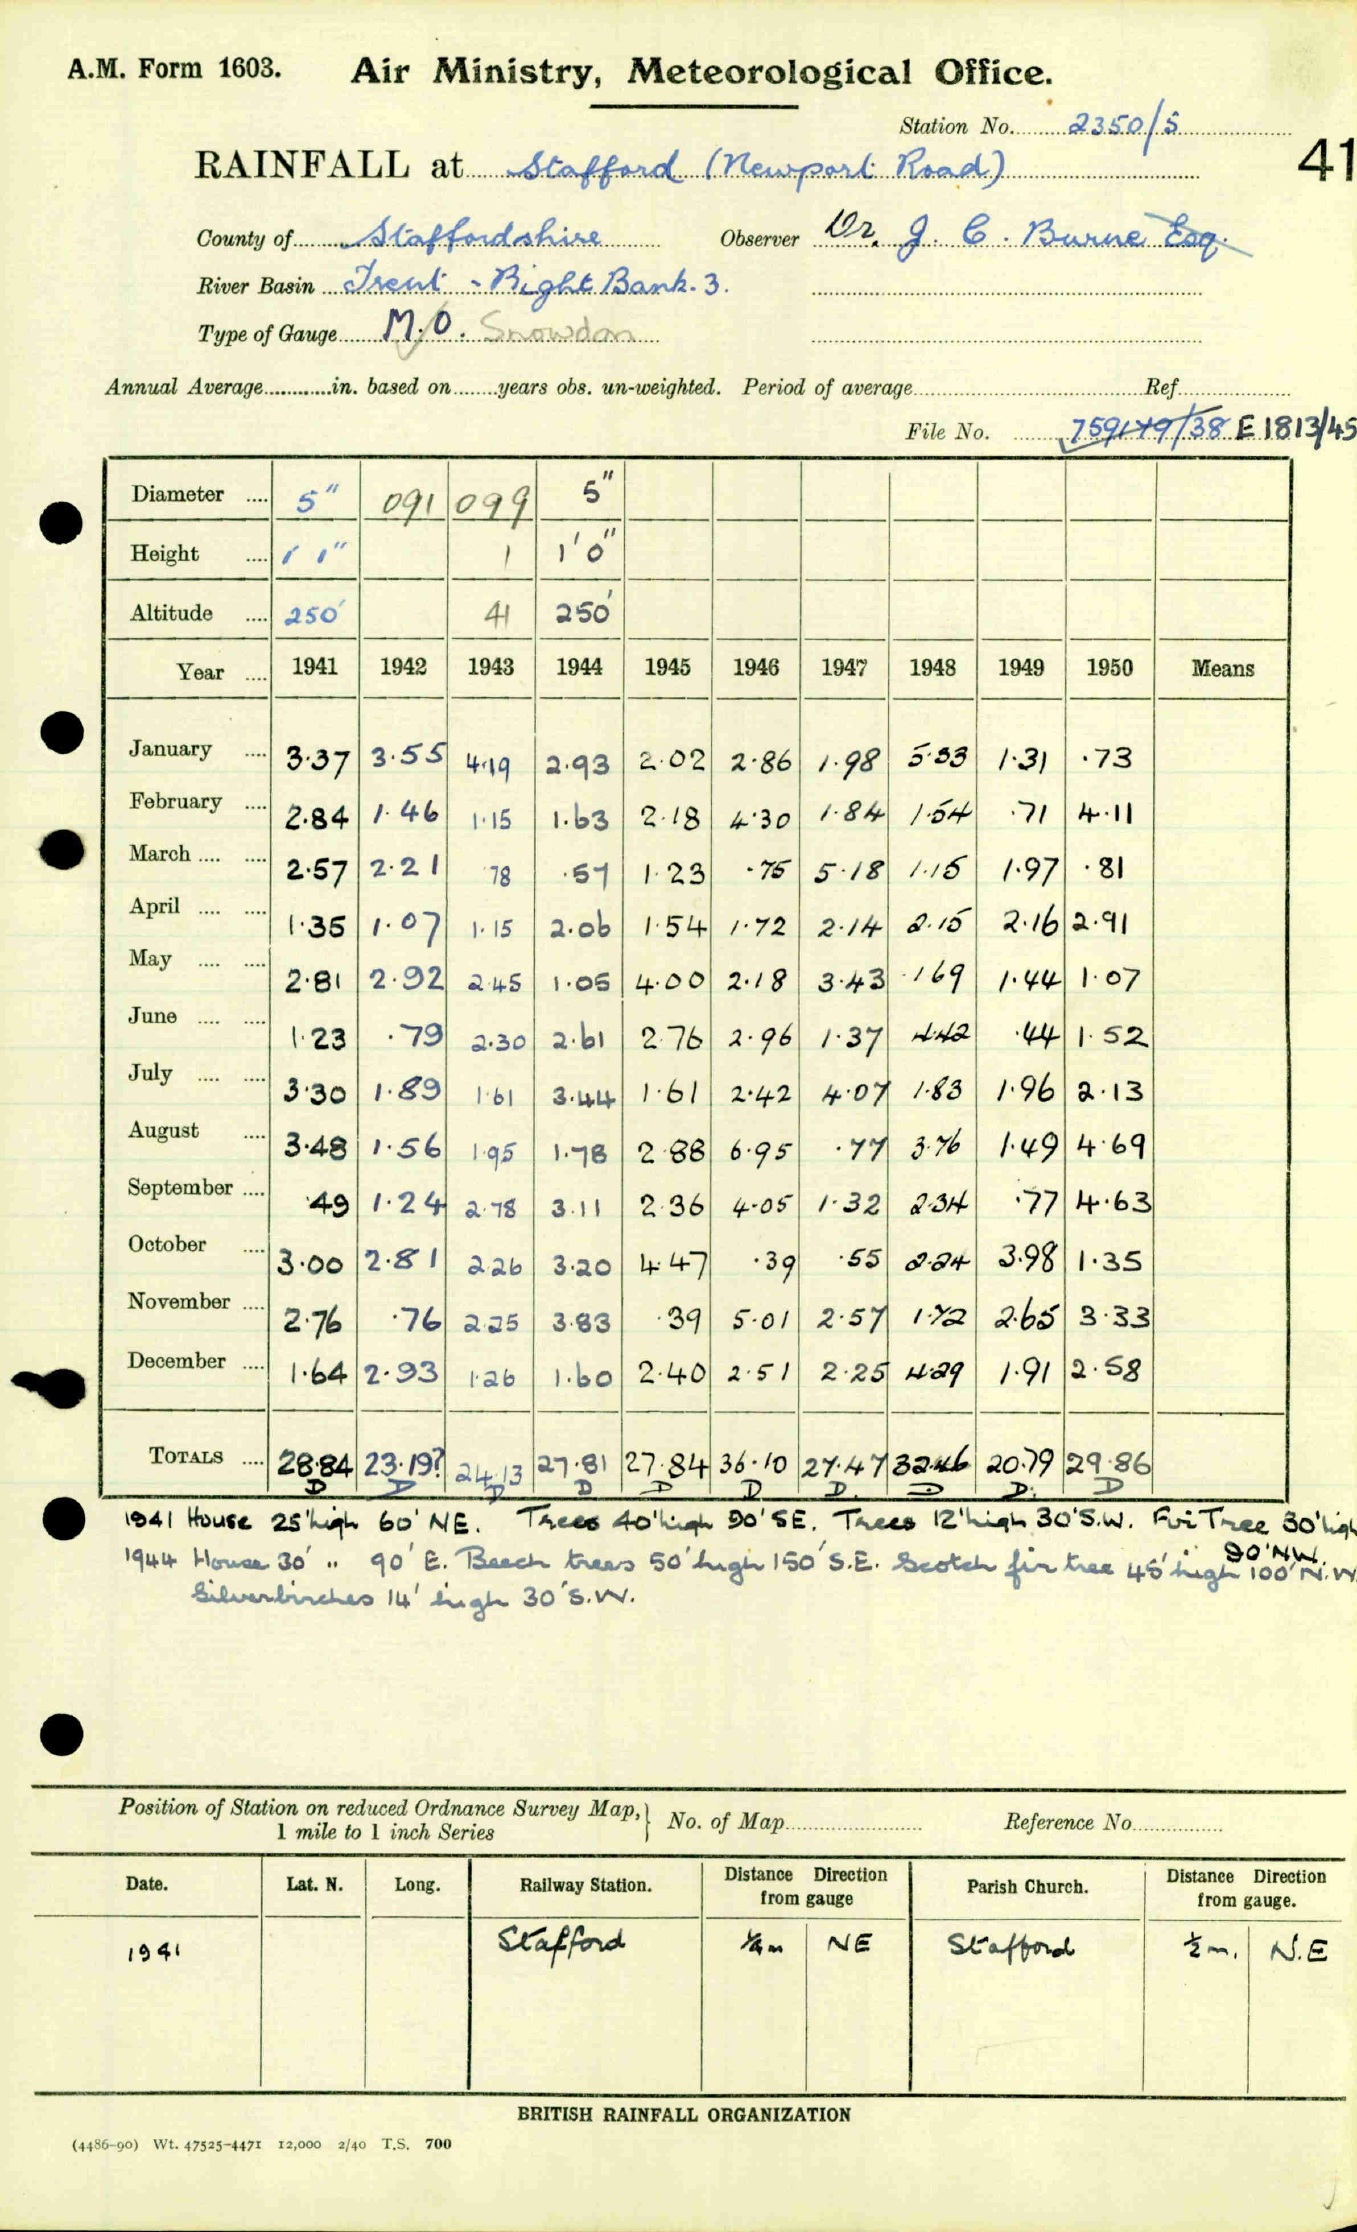 A.M. Form 1603. Air Ministry, Meteorological Office.
Station No. 2350/5
41
RAINFALL at Stafford (Newport Road)
County of Staffordshire Observer Dr. J. C. Burne Esq.
River Basin Trent - Right Bank. 3.
Type of Gauge M.O. Snowdon
Annual Average............in. based on........years obs. un-weighted. Period of average Ref.
File No. 759179/38 E1813/45
Diameter .... 5" 091 099 5"
Height .... 1' 1" 1 1'0"
Altitude .... 250' 41 250'
Year .... 1941 1942 1943 1944 1945 1946 1947 1948 1949 1950 Means
January .... 3.37 3.55 4.19 2.93 2.02 2.86 1.98 5.33 1.31 .73
February .... 2.84 1.46 1.15 1.63 2.18 4.30 1.84 1.54 .71 4.11
March .... .... 2.57 2.21 78 .57 1.23 .75 5.18 1.15 1.97 .81
April .... .... 1.35 1.07 1.15 2.06 1.54 1.72 2.14 2.15 2.16 2.91
May .... .... 2.81 2.92 2.45 1.05 4.00 2.18 3.43 1.69 1.44 1.07
June .... .... 1.23 .79 2.30 2.61 2.76 2.96 1.37 4.42 .44 1.52
July .... .... 3.30 1.89 1.61 3.44 1.61 2.42 4.07 1.83 1.96 2.13
August .... 3.48 1.56 1.95 1.78 2.88 6.95 .77 3.76 1.49 4.69
September .... .49 1.24 2.78 3.11 2.36 4.05 1.32 2.34 .77 4.63
October .... 3.00 2.81 2.26 3.20 4.47 .39 .55 2.24 3.98 1.35
November .... 2.76 .76 2.25 3.83 .39 5.01 2.57 1.72 2.65 3.33
December .... 1.64 2.93 1.26 1.60 2.40 2.51 2.25 4.29 1.91 2.58
TOTALS .... 28.84 23.19? 24.13 27.81 27.84 36.10 27.47 32.46 20.79 29.86
D D D D D D D. D D. D
1941 House 25' high 60' NE. Trees 40' high 90' SE. Trees 12' high 30' S.W. Fir Tree 30' high
90' NW.
1944 House 30' " 90' E. Beech trees 50' high 150' S.E. Scotch fir tree 45' high 100' N.W.
Silverbirches 14' high 30' S.W.
Position of Station on reduced Ordnance Survey Map,} No. of Map Reference No.
1 mile to 1 inch Series
Date. Lat. N. Long. Railway Station. Distance Direction from gauge Parish Church. Distance Direction from gauge.
1941 Stafford ¼m NE Stafford ½m. N.E
BRITISH RAINFALL ORGANIZATION
(4486-90) Wt. 47525-4471 12,000 2/40 T.S. 700